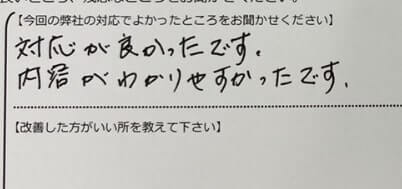 【今回の弊社の対応でよかったところをお聞かせください】
対応が良かったです。
内容がわかりやすかったです。
【改善した方がいい所を教えて下さい】